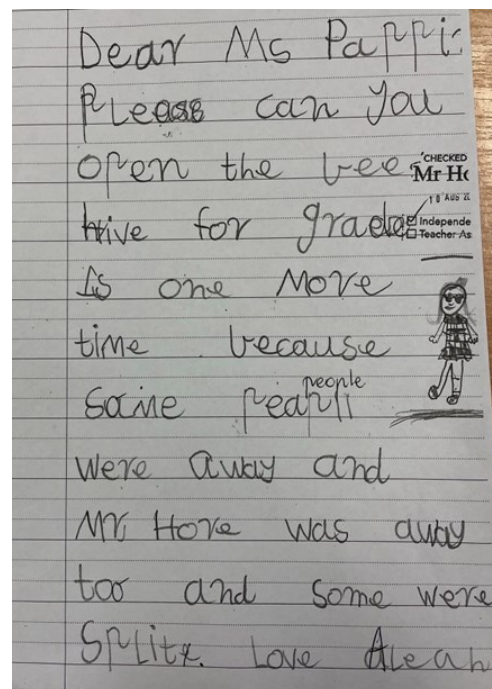 Dear Ms Pappi
Please can you
open the bee
'CHECKED
Mr Ho
10 AUG 2
hive for grade
Independe
Teacher As
1s one More
time because
people
some peapli
were away and
Mr Hore was away
too and some were
Split. Love Aleah